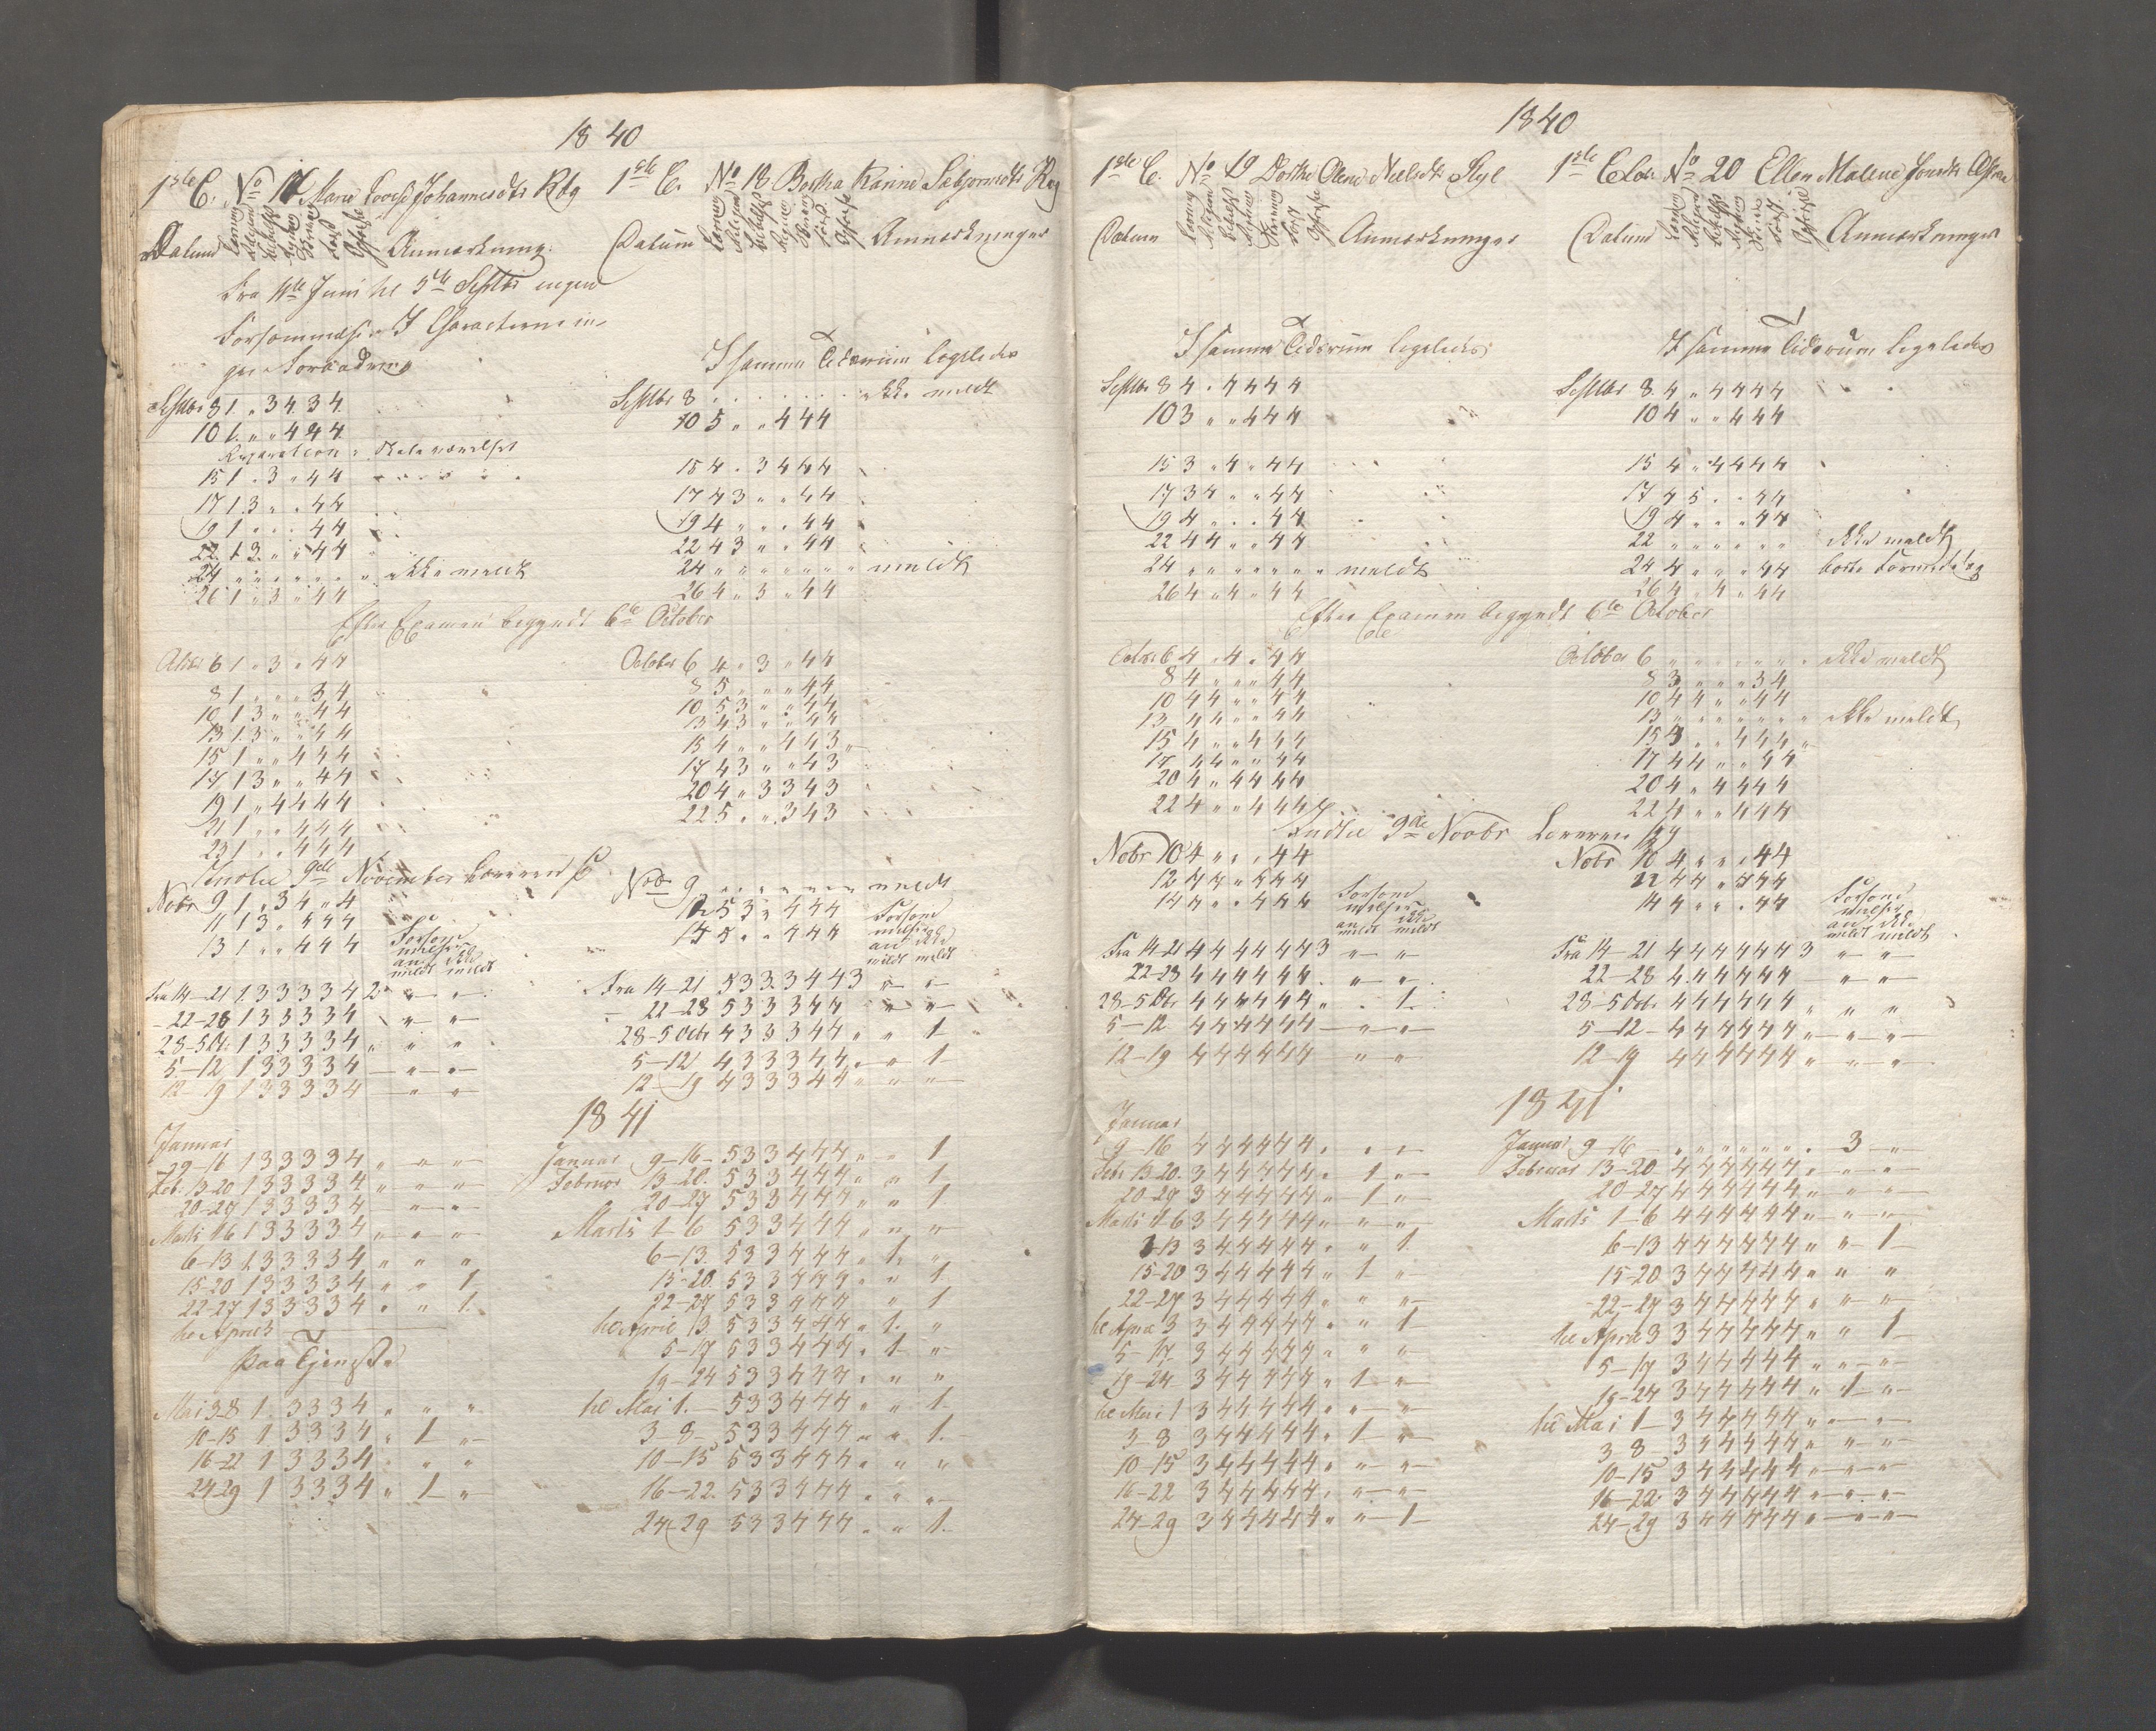 1840
1ste C. No 17 Marie Johannesdtr
Datum Anmærkning
Fra 11te Juni til 5te Septbr ingen
Forsømmelse I Characterne in-
gen Forandring
Septbr 8 1 „ 3 4 3 4
10 1 „ „ 4 4 4
15 1 „ 3 „ 4 4
17 1 3 „ „ 4 4
19 1 „ „ „ 4 4
22 1 3 „ „ 4 4
24 „ „ „ „ „ „ „ ikke meldt
26 1 „ 3 „ 4 4
Efter Examen begyndt 6te October
Octbr 6 1 „ 3 „ 4 4
8 1 „ „ „ 3 4
10 1 3 „ „ 4 4
13 1 3 „ „ 4 4
15 1 „ „ 4 4 4
17 1 3 „ „ 4 4
19 1 „ 4 4 4 4
21 1 „ „ 4 4 4
23 1 „ „ 4 4 4
9de November
Nobr 9 1 „ 3 4 „ 4
11 1 3 „ 4 4 4
13 1 „ „ 4 4 4 Forsøm
melser
an ikke
meldt meldt
Fra 14–21 1 3 3 3 3 4 2 „ „
22–28 1 3 3 3 3 4 „ „
28–5 1 3 3 3 3 4 „ „ „
5–12 1 3 3 3 3 4 „ „
12–19 1 3 3 3 3 4 „ „
Januar
9–16 1 3 3 3 3 4 „ „ „
Feb. 13–20 1 3 3 3 3 4 „ „ „
20–27 1 3 3 3 3 4 „ „
Marts 1–6 1 3 3 3 3 4 „ „ „
6–13 1 3 3 3 3 4 „ „ „
15–20 1 3 3 3 3 4 „ „ 1
22–27 1 3 3 3 3 4 „ „ 1
til April 3
paa Tjeneste
Mai 3–8 1 3 3 3 4 „ „ „
10–15 1 3 3 3 4 „ 1 „
16–22 1 3 3 3 4 „ „ „
24–29 1 3 3 3 4 „ 1 „
1ste C. No 18 Karine
Datum Anmærkninger
I samme Tidsrum ligeledes
Septbr 8 ikke meldt
10 5 „ „ 4 4 4
15 4 „ 3 4 4 4
17 4 3 „ „ 4 4
19 4 „ „ „ 4 4
22 4 3 „ „ 4 4
24 „ „ „ „ „ „ „ meldt
26 4 „ 3 „ 4 4
October 6 4 „ 3 „ 4 4
8 5 „ „ „ 4 4
10 5 3 „ „ 4 4
13 4 3 „ „ 4 4
15 4 „ „ 4 4 3
17 4 3 „ „ 4 3
20 4 „ 3 3 4 3
22 5 „ „ 3 4 3
Nobr 9 „ „ „ „ „ „ „ meldt
12 5 3 „ 4 4 4 Forsøm
melser
an ikke
meldt meldt
14 5 „ „ 4 4 4
Fra 14–21 5 3 3 3 4 4 3 „ „
22–28 5 3 3 3 4 4 „ „
28–5 Dcbr 4 3 3 3 4 4 „ „ 1
5–12 4 3 3 3 4 4 „ „ 1
12–19 4 3 3 3 4 4 „ „ „
1841
Januar 9–16 5 3 3 4 4 4 „ „ 1
Februar 13–20 5 3 3 4 4 4 „ „ 1
20–27 5 3 3 4 4 4 „ „ 1
Marts 1–6 5 3 3 4 4 4 „ „ „
6–13 5 3 3 4 4 4 „ 1 „
15–20 5 3 3 4 4 4 „ „ 1
22–27 5 3 3 4 4 4 „ 1
til April 3 5 3 3 4 4 4 „ 1 „
5–17 5 3 3 4 4 4 „ 1 „
19–24 5 3 3 4 4 4 „ „ „
til Mai 1 5 3 3 4 4 4 „ „ 1
3–8 5 3 3 4 4 4 „ „ 1
10–15 5 3 3 4 4 4 „ „ „
16–22 5 3 3 4 4 4 „ „ „
24–29 5 3 3 4 4 4 „ „ 1
1840
1ste C. No 19 Dorthe Olene
Datum Anmærkninger
I samme Tidsrum ligeledes
Septbr 8 4 „ 4 4 4 4
10 3 „ „ 4 4 4
15 3 „ 4 „ 4 4
17 3 4 „ „ 4 4
19 4 „ „ „ 4 4
22 4 4 „ „ 4 4
24 „ „ „ „ „ „ „ meldt
26 4 „ 4 „ 4 4
Efter Examen begyndt 6te October
Octbr 6 4 „ 4 „ 4 4
8 4 „ „ „ 4 4
10 4 4 „ „ 4 4
13 4 4 „ „ 4 4
15 4 „ „ 4 4 4
17 4 4 „ „ 4 4
20 4 „ 4 4 4 4
22 4 „ „ 4 4 4
9de Novbr
Nobr 10 4 „ „ „ 4 4
12 4 4 „ 4 4 4
14 4 „ „ 4 4 4 Forsøm
melser
an ikke
meldt meldt
Fra 14–21 4 4 4 4 4 4 3 „ „
22–28 4 4 4 4 4 4 „ „
28–5 Dbr 4 4 4 4 4 4 „ „ 1
5–12 4 4 4 4 4 4 „ „
12–19 4 4 4 4 4 4 „ „
Januar
9–16 4 4 4 4 4 4 „ „ „
Febr 13–20 3 4 4 4 4 4 „ 1 „
20–27 3 4 4 4 4 4 „ 1 „
Marts 1–6 3 4 4 4 4 4 „ „ „
6–13 3 4 4 4 4 4 „ „ 1
15–20 3 4 4 4 4 4 „ 1 „
22–27 3 4 4 4 4 4 „ „ „
til April 3 3 4 4 4 4 4 „ „ 1
5–17 3 4 4 4 4 4 „ „ „
19–24 3 4 4 4 4 4 „ 1 „
til Mai 1 3 4 4 4 4 4 „ „ „
3–8 3 4 4 4 4 4 „ 1 „
10–15 3 4 4 4 4 4 „ „ „
16–22 3 4 4 4 4 4 „ „ „
24–29 3 4 4 4 4 4 „ „ 1
1ste No 20 Ellen Malene
Datum Anmærkninger
I samme Tidsrum ligeledes
Septbr 8 4 „ 4 4 4 4
10 4 „ „ 4 4 4
15 4 „ 4 4 4 4
17 4 5 „ „ 4 4
19 4 „ „ „ 4 4
22 „ „ „ „ „ „ ikke meldt
24 4 „ „ „ 4 4
26 4 „ 4 „ 4 4
October 6 „ „ „ „ „ „ „ ikke meldt
8 3 „ „ „ 3 4
10 4 4 „ „ 4 4
13 „ „ „ „ „ „ „ ikke meldt
15 4 „ „ 4 4 4
17 4 4 „ „ 4 4
20 4 „ 4 4 4 4
22 4 „ „ 4 4 4
Nobr 10 4 „ „ „ 4 4
12 4 4 „ 4 4 4
14 4 „ „ „ 4 4 Forsøm
melser
an ikke
meldt meldt
Fra 14–21 4 4 4 4 4 4 3 „ „
22–28 4 4 4 4 4 4 „ „
28–5 Dcbr 4 4 4 4 4 4 „ „ „
5–12 4 4 4 4 4 4 „ „ „
12–19 4 4 4 4 4 4 „ „ „
1841
Januar 9–16 „ „ „ „ „ „ „ 3 „
Februar 13–20 4 4 4 4 4 4 „ „ „
20–27 4 4 4 4 4 4 „ „ „
Marts 1–6 4 4 4 4 4 4 „ „ „
6–13 4 4 4 4 4 4 „ „ 1
15–20 3 4 4 4 4 4 „ „ „
22–27 3 4 4 4 4 4 „ „ „
til April 3 3 4 4 4 4 4 „ „ 1
5–17 3 4 4 4 4 4 „ „ „
19–24 3 4 4 4 4 4 „ 1 „
til Mai 1 3 4 4 4 4 4 „ „ „
3–8 3 4 4 4 4 4 „ „ „
10–15 3 4 4 4 4 4 „ „ „
16–22 3 4 4 4 4 4 „ „ „
24–29 3 4 4 4 4 4 „ „ „